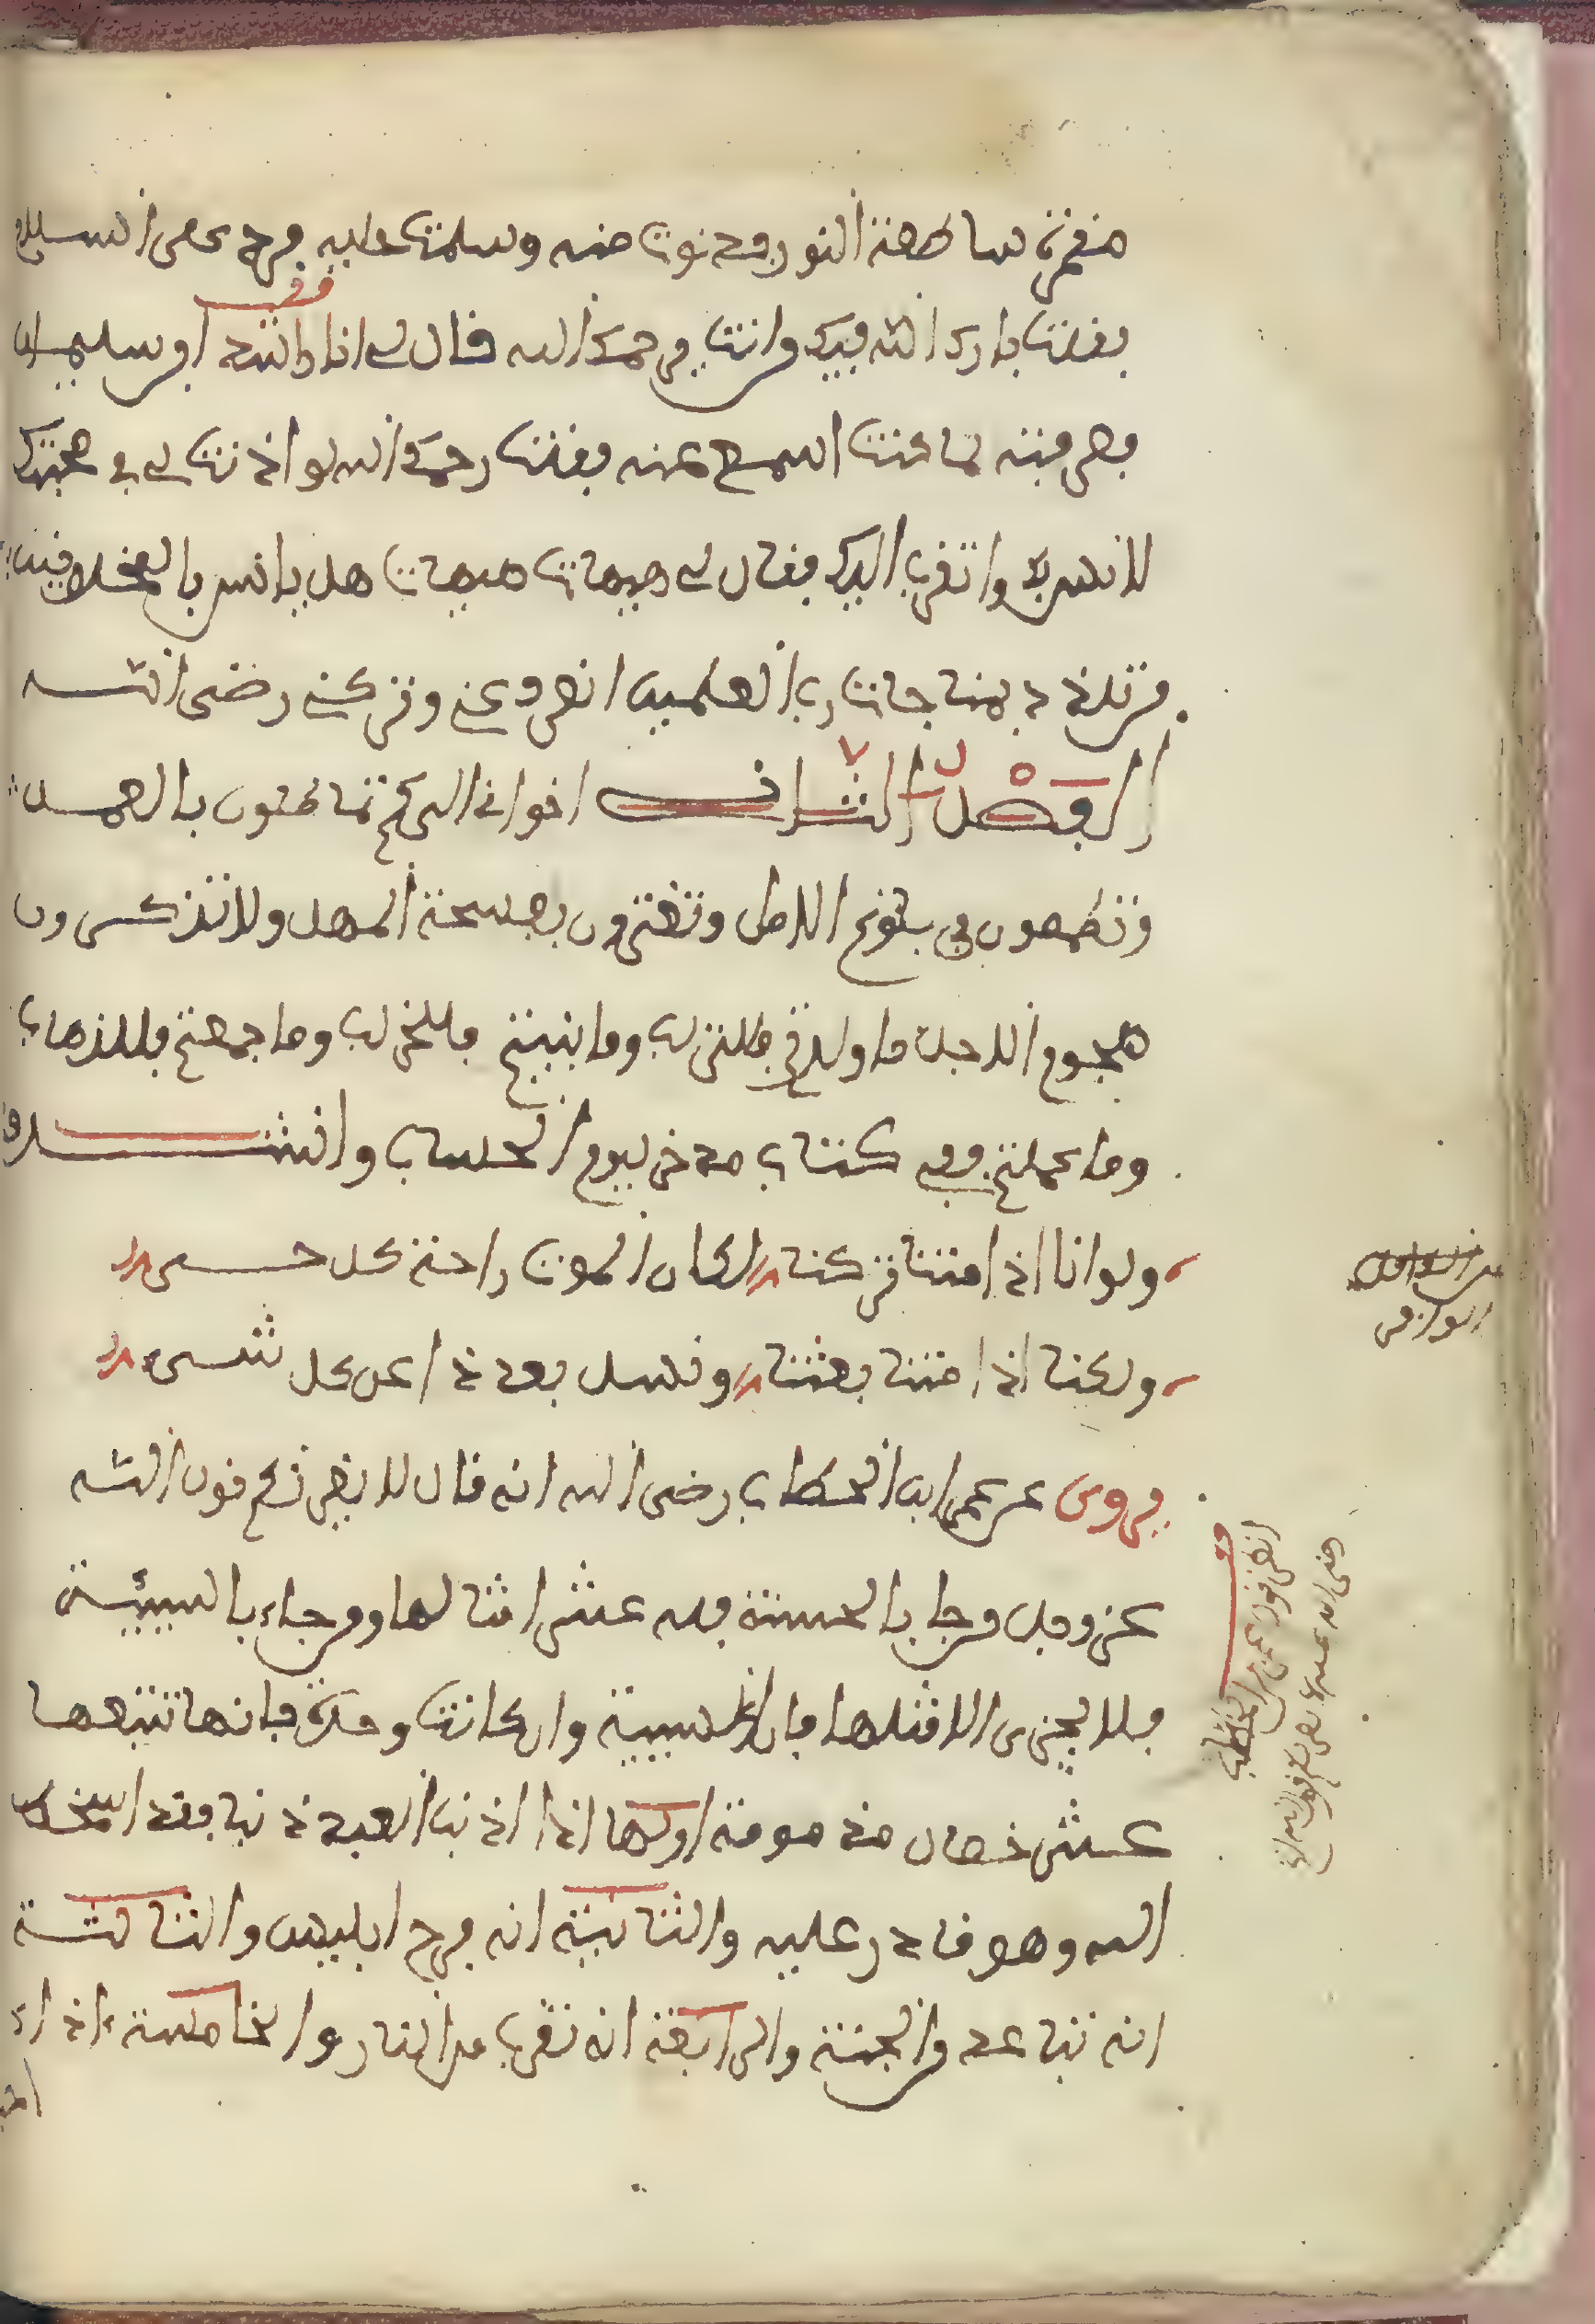 مقمرة ساطعة النور فدنوت منه وسلمت عليه فرد على السلام
فقلت بارك الله فيك وانت يرحمك الله فقال لي انا راشد ابن سليمان
فعرفته لما كنت اسمع عنه فقلت رحمك الله لو اذنت لي في صحبتك
لانس بك واتقرب اليك فقال لي هيهات هيهات هل يانس بالمخلوقين
من تلذذ بمناجات رب العلمين انصرف عني وتركني رضي الله
الفصل الثاني اخواني الى كم تماطلون بالعمل
وتطمعون في بلوغ الامل وتغترون بفسحة المهل ولا تذكرون
هجوم الاجل ما ولدتم فللتراب وما بنيتم فللخراب وما جمعتم فللذهاب
وما عملتم ففي كتاب مدخر ليوم الحساب وانشدوا
ولو انا اذا متنا تركنا لكان الموت راحة كل حي
ولكنا اذا متنا بعثنا ونسل بعد ذا عن كل شيء
يروى عن عمر ابن الخطاب رضي الله انه قال لا يغرنكم قول الله
عز وجل من جا بالحسنة فله عشر امثالها ومن جاء بالسيئة
فلا يجزى الا مثلها فان السيئة وان كانت وحدة فانها تتبعها
عشر خصال مذمومة اولها اذا اذنب العبد ذنبا فقد اسخط
الله وهو قادر عليه والثانية انه فرح ابليس والثالثة
انه تباعد من الجنة والرابعة انه تقرب من النار والخامسة اذا
انظر قول عمر ابن الخطاب
رضي الله عنه